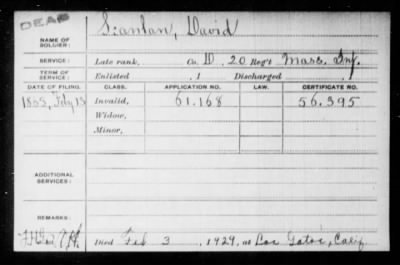 DEAD
NAME OF SOLDIER: Scanlan, David
SERVICE: Late rank, Co. D, 20 Reg't Mass. Inf.
TERM OF SERVICE: Enlisted , 1 Discharged , 1
DATE OF FILING. CLASS. APPLICATION NO. LAW. CERTIFICATE NO.
1865, July 15 Invalid, 61.168 56.395
Widow,
Minor,
ADDITIONAL SERVICES:
REMARKS:
Died Feb 3, 1929, at Los Gatos, Calif